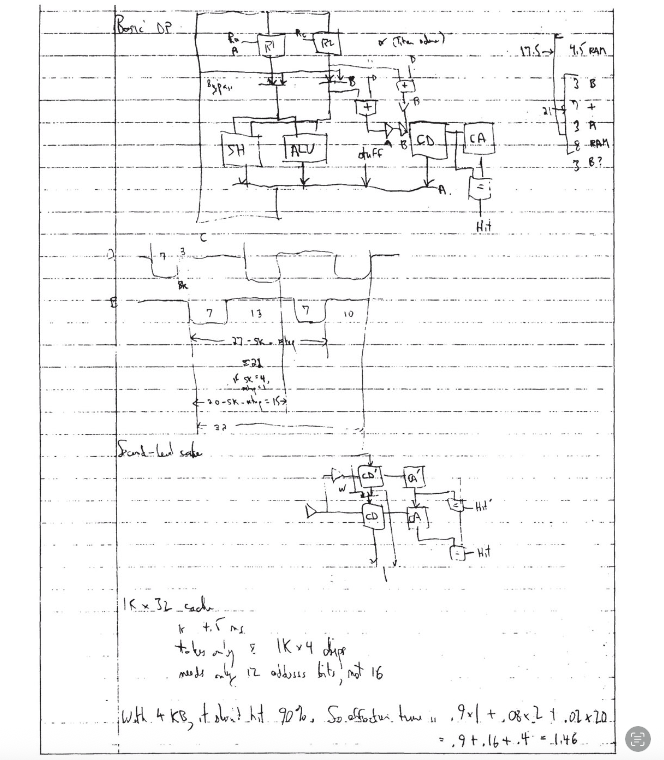 Basic DP
R1
R2
or (Then adder)
17.5→
4.5 RAM
Bypass
B
D
D
3 B
+
+
B
21
7 +
3 A
8 RAM
3 B?
SH
ALU
stuff
A
B
CD
CA
A
=
Hit
C
7 3
B
7 13 7 10
27 - SK -
≤21
if SK = 4,
20 - SK - = 15
32
Second-level cache
CD'
CA'
W
= Hit'
CD
CA
= Hit
1K x 32 cache
takes only 8 1K x 4 chips
needs only 12 address bits, not 16
With 4 KB, it should hit 90%. So effective time is .9x1 + .08x2 + .02x20
= .9 + .16 + .4 = 1.46